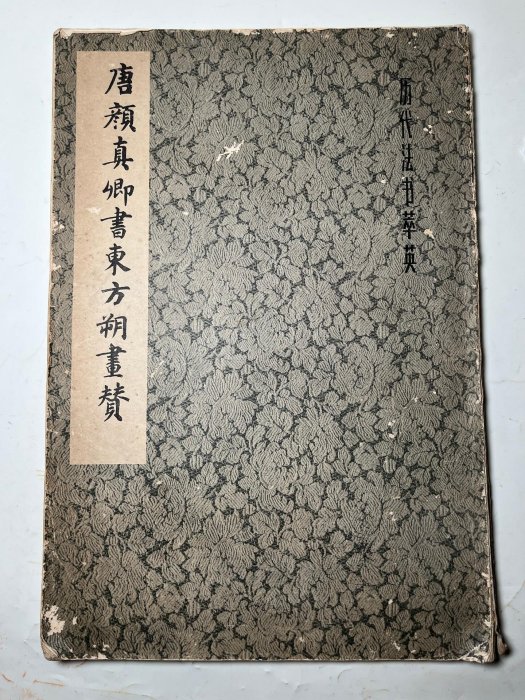 历代法书萃英
唐顔真卿書東方朔畫贊